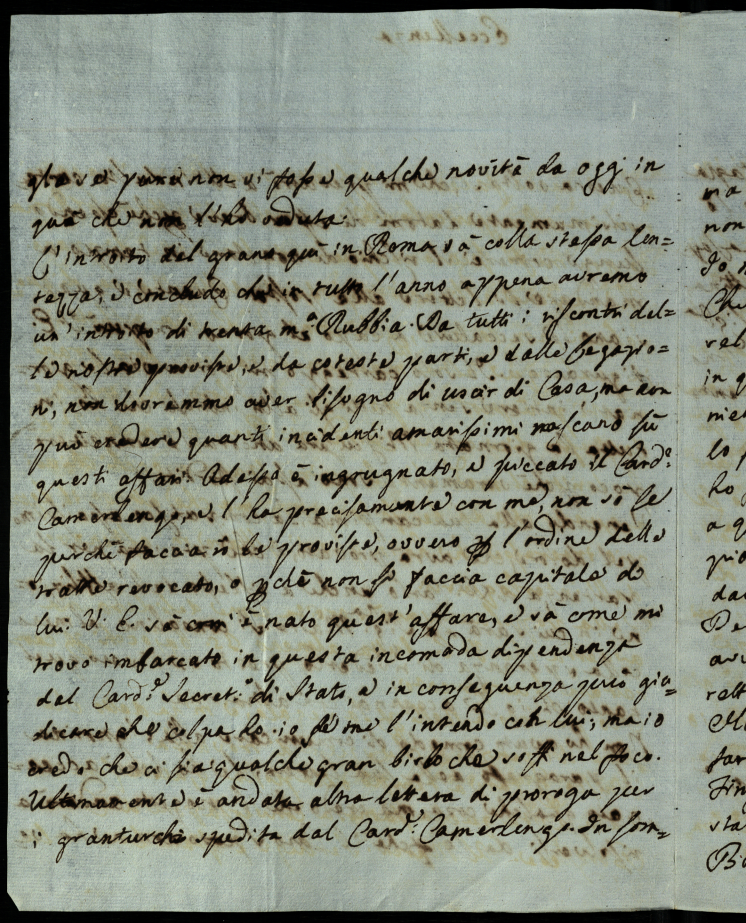 glese pure non vi fosse qualche novità da oggi in
quà che non l'ho veduta.
L'introito del grano quì in Roma và colla stessa len=
tezza, e concludo che in tutto l'anno appena avremo
un'introito di trenta m.a Rubbia. Da tutti i riscontri del=
le nostre proviste, e da coteste parti, e dalle Legazio=
ni, non dovremmo aver bisogno di uscir di Casa, ma non
può credere quanti incidenti amarissimi nascano sù
questi affari. Adesso è ingrugnato, e piccato il Card.e
Camerlengo, e l'ha precisamente con me, non sò se
perchè faccia io le proviste, ovvero p l'ordine delle
tratte revocato, o pchè non si faccia capitale di
lui. V. E. sà com'è nato quest'affare, e sà come mi
trovo imbarcato in questa incomoda dipendenza
del Card.e Secret.o di Stato, e in conseguenza può giu=
dicare che colpa ho io se me l'intendo con lui; ma io
credo che ci sia qualche gran birbo che soffi nel foco.
Ultimamente è andata altra lettera di proroga per
i granturchi spedita dal Card.e Camerlengo. In som=
ma
non
Io
Che
rel
in q
mes
lo
ho
a q
più
dar
Pe
avv
rett
far
sta